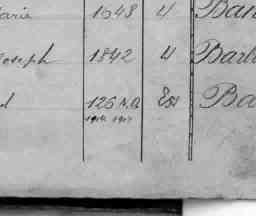 arie 1648 4 Ban
oseph 1842 4 Barb
d 126 N.A. Ba